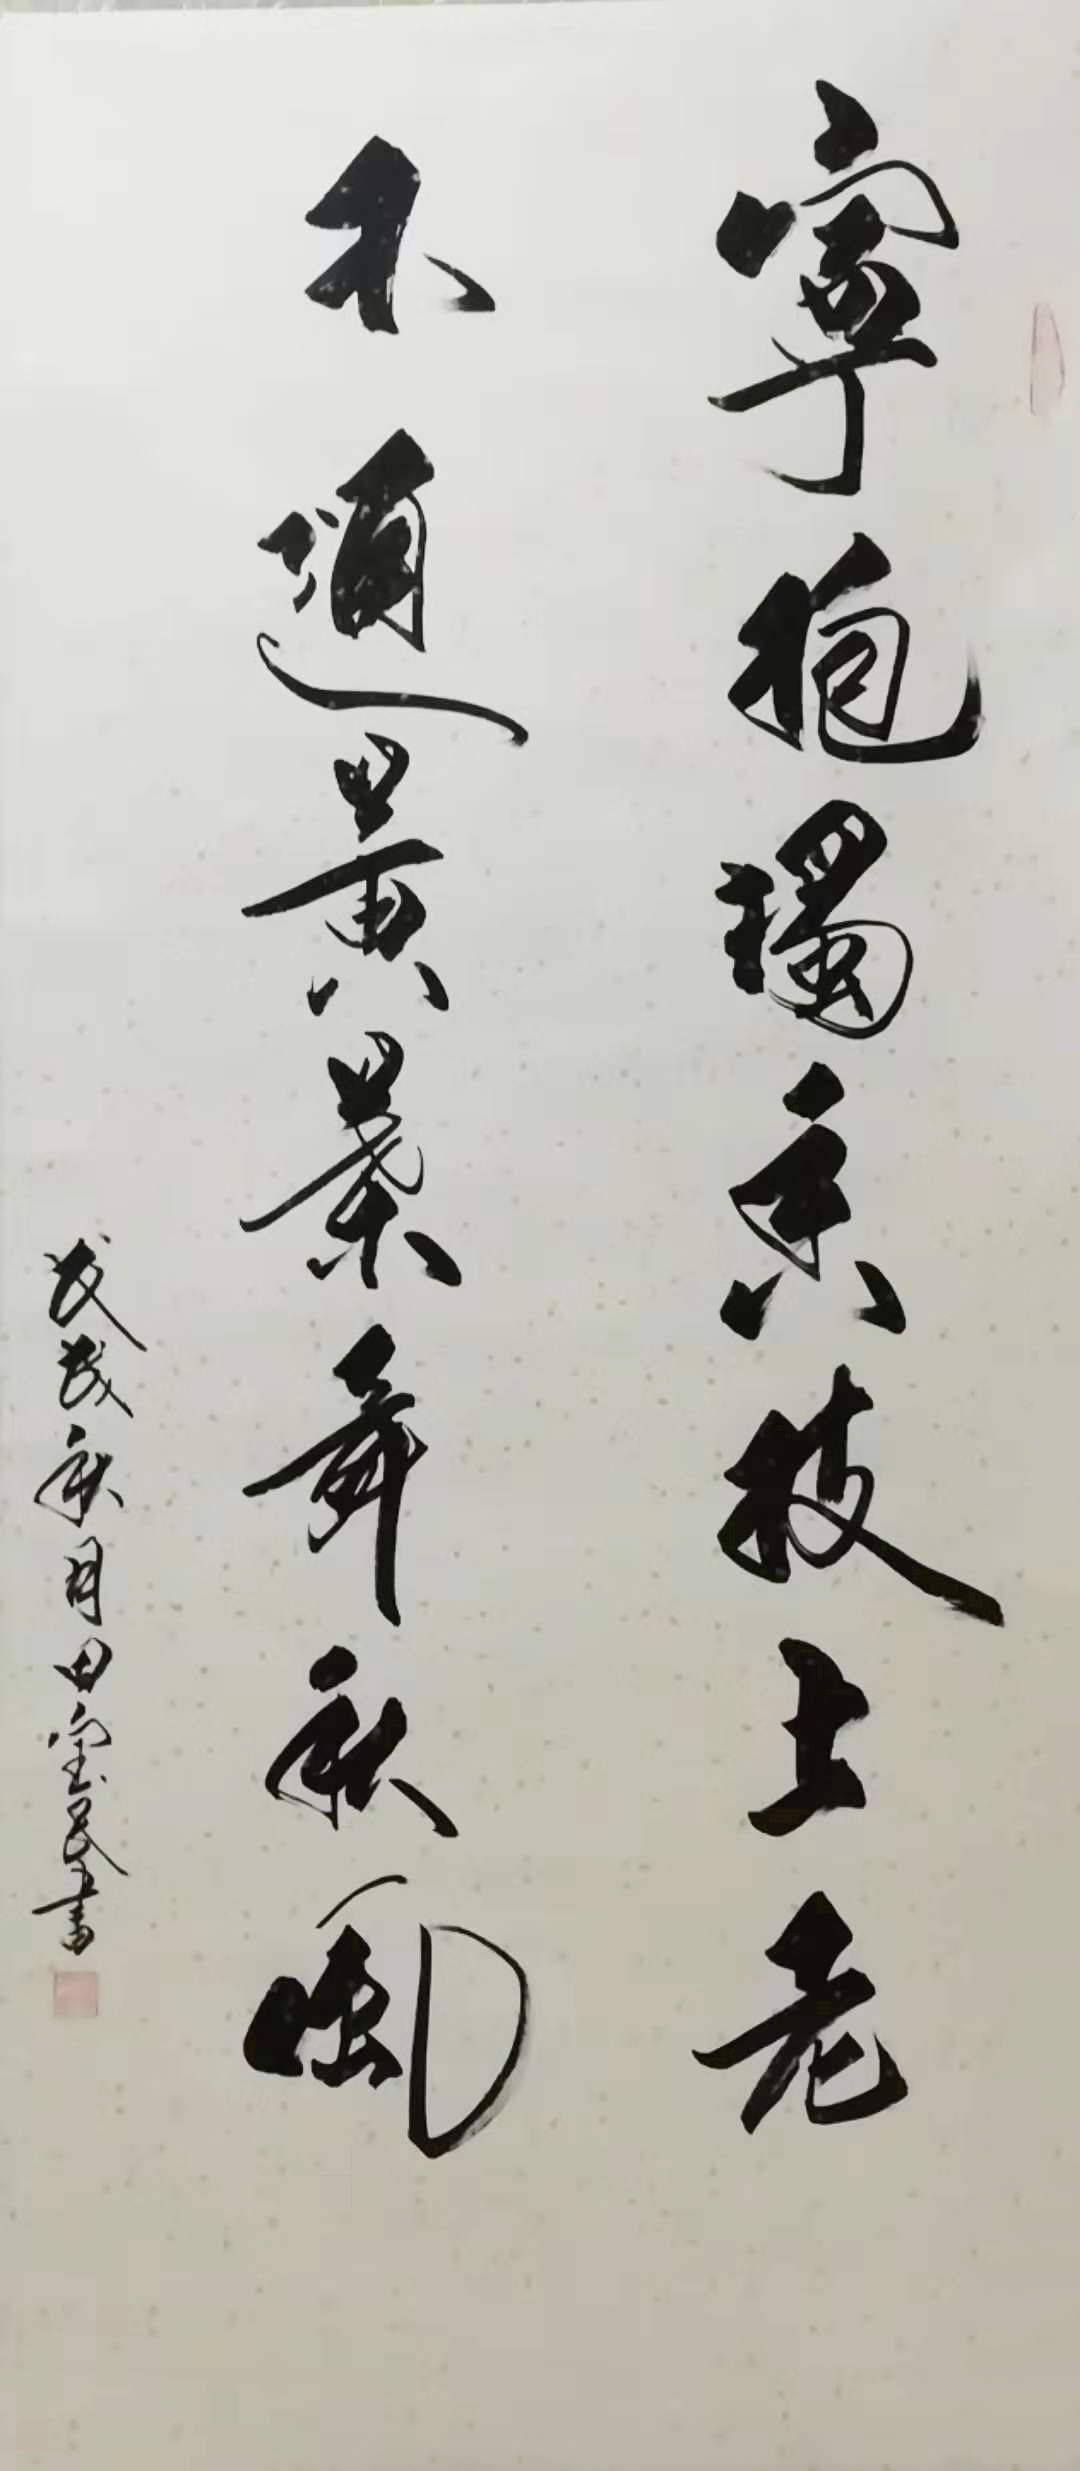 寧抱獨香枝上老
不隨黄葉舞秋風
戊戌秋月田宝民書